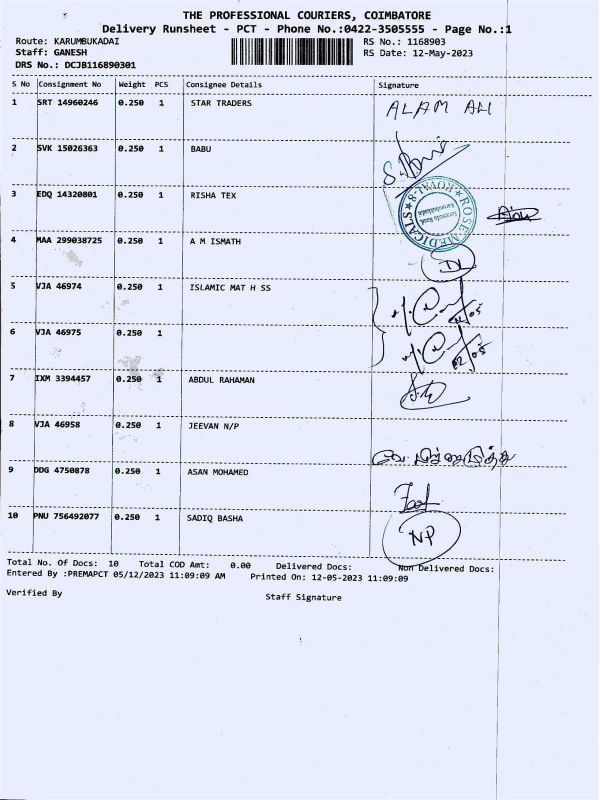 THE PROFESSIONAL COURIERS, COIMBATORE
Delivery Runsheet - PCT - Phone No.:0422-3505555 - Page No.:1
Route: KARUMBUKADAI RS No.: 1168903
Staff: GANESH RS Date: 12-May-2023
DRS No.: DCJB116890301
S No Consignment No Weight PCS Consignee Details Signature
1 SRT 14960246 0.250 1 STAR TRADERS ALAM ALI
2 SVK 15026363 0.250 1 BABU
3 EDQ 14320801 0.250 1 RISHA TEX
ROSE MEDICALS ★ KOVAI-8 ★
4 MAA 299038725 0.250 1 A M ISMATH
5 VJA 46974 0.250 1 ISLAMIC MAT H SS
6 VJA 46975 0.250 1
7 IXM 3394457 0.250 1 ABDUL RAHAMAN
8 VJA 46958 0.250 1 JEEVAN N/P
9 DDG 4750878 0.250 1 ASAN MOHAMED
10 PNU 756492077 0.250 1 SADIQ BASHA NP
Total No. Of Docs: 10 Total COD Amt: 0.00 Delivered Docs: Non Delivered Docs:
Entered By :PREMAPCT 05/12/2023 11:09:09 AM Printed On: 12-05-2023 11:09:09
Verified By Staff Signature